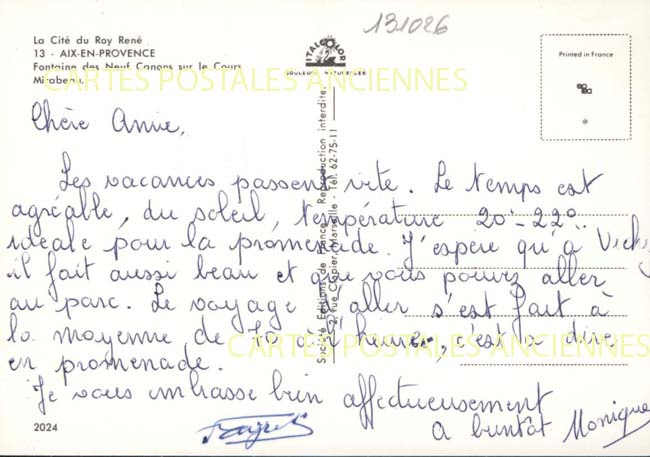 131026
La Cité du Roy René
13 - AIX-EN-PROVENCE
Fontaine des Neuf Canons sur le Cours
Mirabeau.
ITALCOLOR
COULEURS NATURELLES
Printed in France
CARTES POSTALES ANCIENNES
Chère Annie,
Les vacances passent vite. Le temps est
agréable, du soleil, température 20°-22°
idéale pour la promenade. J'espère qu'à Vichy
il fait aussi beau et que vous pouvez aller
au parc. Le voyage aller s'est fait à
la moyenne de 70 à l'heure, c'est à dire
en promenade.
Je vous embrasse bien affectueusement
a bientôt Monique
2024
Société Editions de France - Reproduction interdite.
2, rue Capier, Marseille - Tél. 62-75-11
CARTES POSTALES ANCIENNES